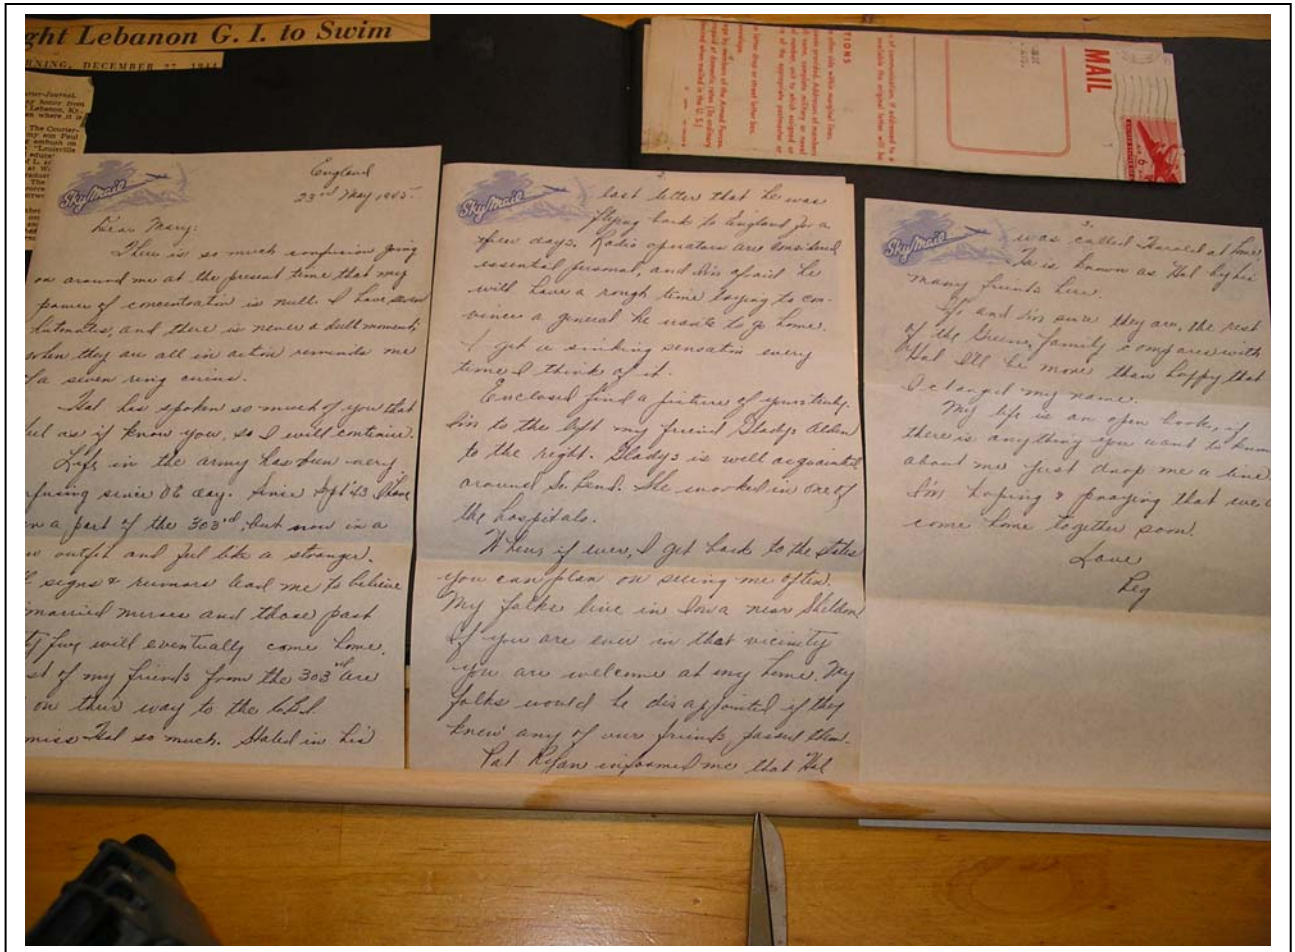 ght Lebanon G. I. to Swim
RNING, DECEMBER 27, 1944
Sky Mail
England
23rd May 1945.
Dear Mary:
There is so much confusion going
on around me at the present time that my
power of concentration is null. I have seven
hutmates, and there is never a dull moment;
when they are all in action reminds me
a seven ring circus.
Hal has spoken so much of you that
as if know you, so I will continue.
Life in the army has been very
fusing since VE day. Since Sept 43 I have
n a part of the 303rd, but now in a
w outfit and feel like a stranger.
signs & rumors lead me to believe
married nurses and those past
ty five will eventually come home.
st of my friends from the 303rd are
on their way to the C.B.I.
miss Hal so much. Stated in his
Sky Mail
2.
last letter that he was
flying back to England for a
few days. Radio operators are considered
essential personal, and I'm afraid he
will have a rough time trying to con-
vince a general he wants to go home.
I get a sinking sensation every
time I think of it.
Enclosed find a picture of yours truly.
I'm to the left my friend Gladys Alden
to the right. Gladys is well acquainted
around So. Bend. She worked in one of
the hospitals.
When, if ever, I get back to the states
you can plan on seeing me often.
My folks live in Iowa near Sheldon
If you are ever in that vicinity
you are welcome at my home. My
folks would be disappointed if they
knew any of our friends passed them.
Pat Ryan informed me that Hal
Sky Mail
3.
was called Harold at home
He is known as Hal by his
many friends here.
If, and I'm sure they are, the rest
of the Greene family compares with
Hal I'll be more than happy that
I changed my name.
My life is an open book, if
there is anything you want to know
about me just drop me a line
I'm hoping & praying that we
come home together soon.
Love
Peg
MAIL
6